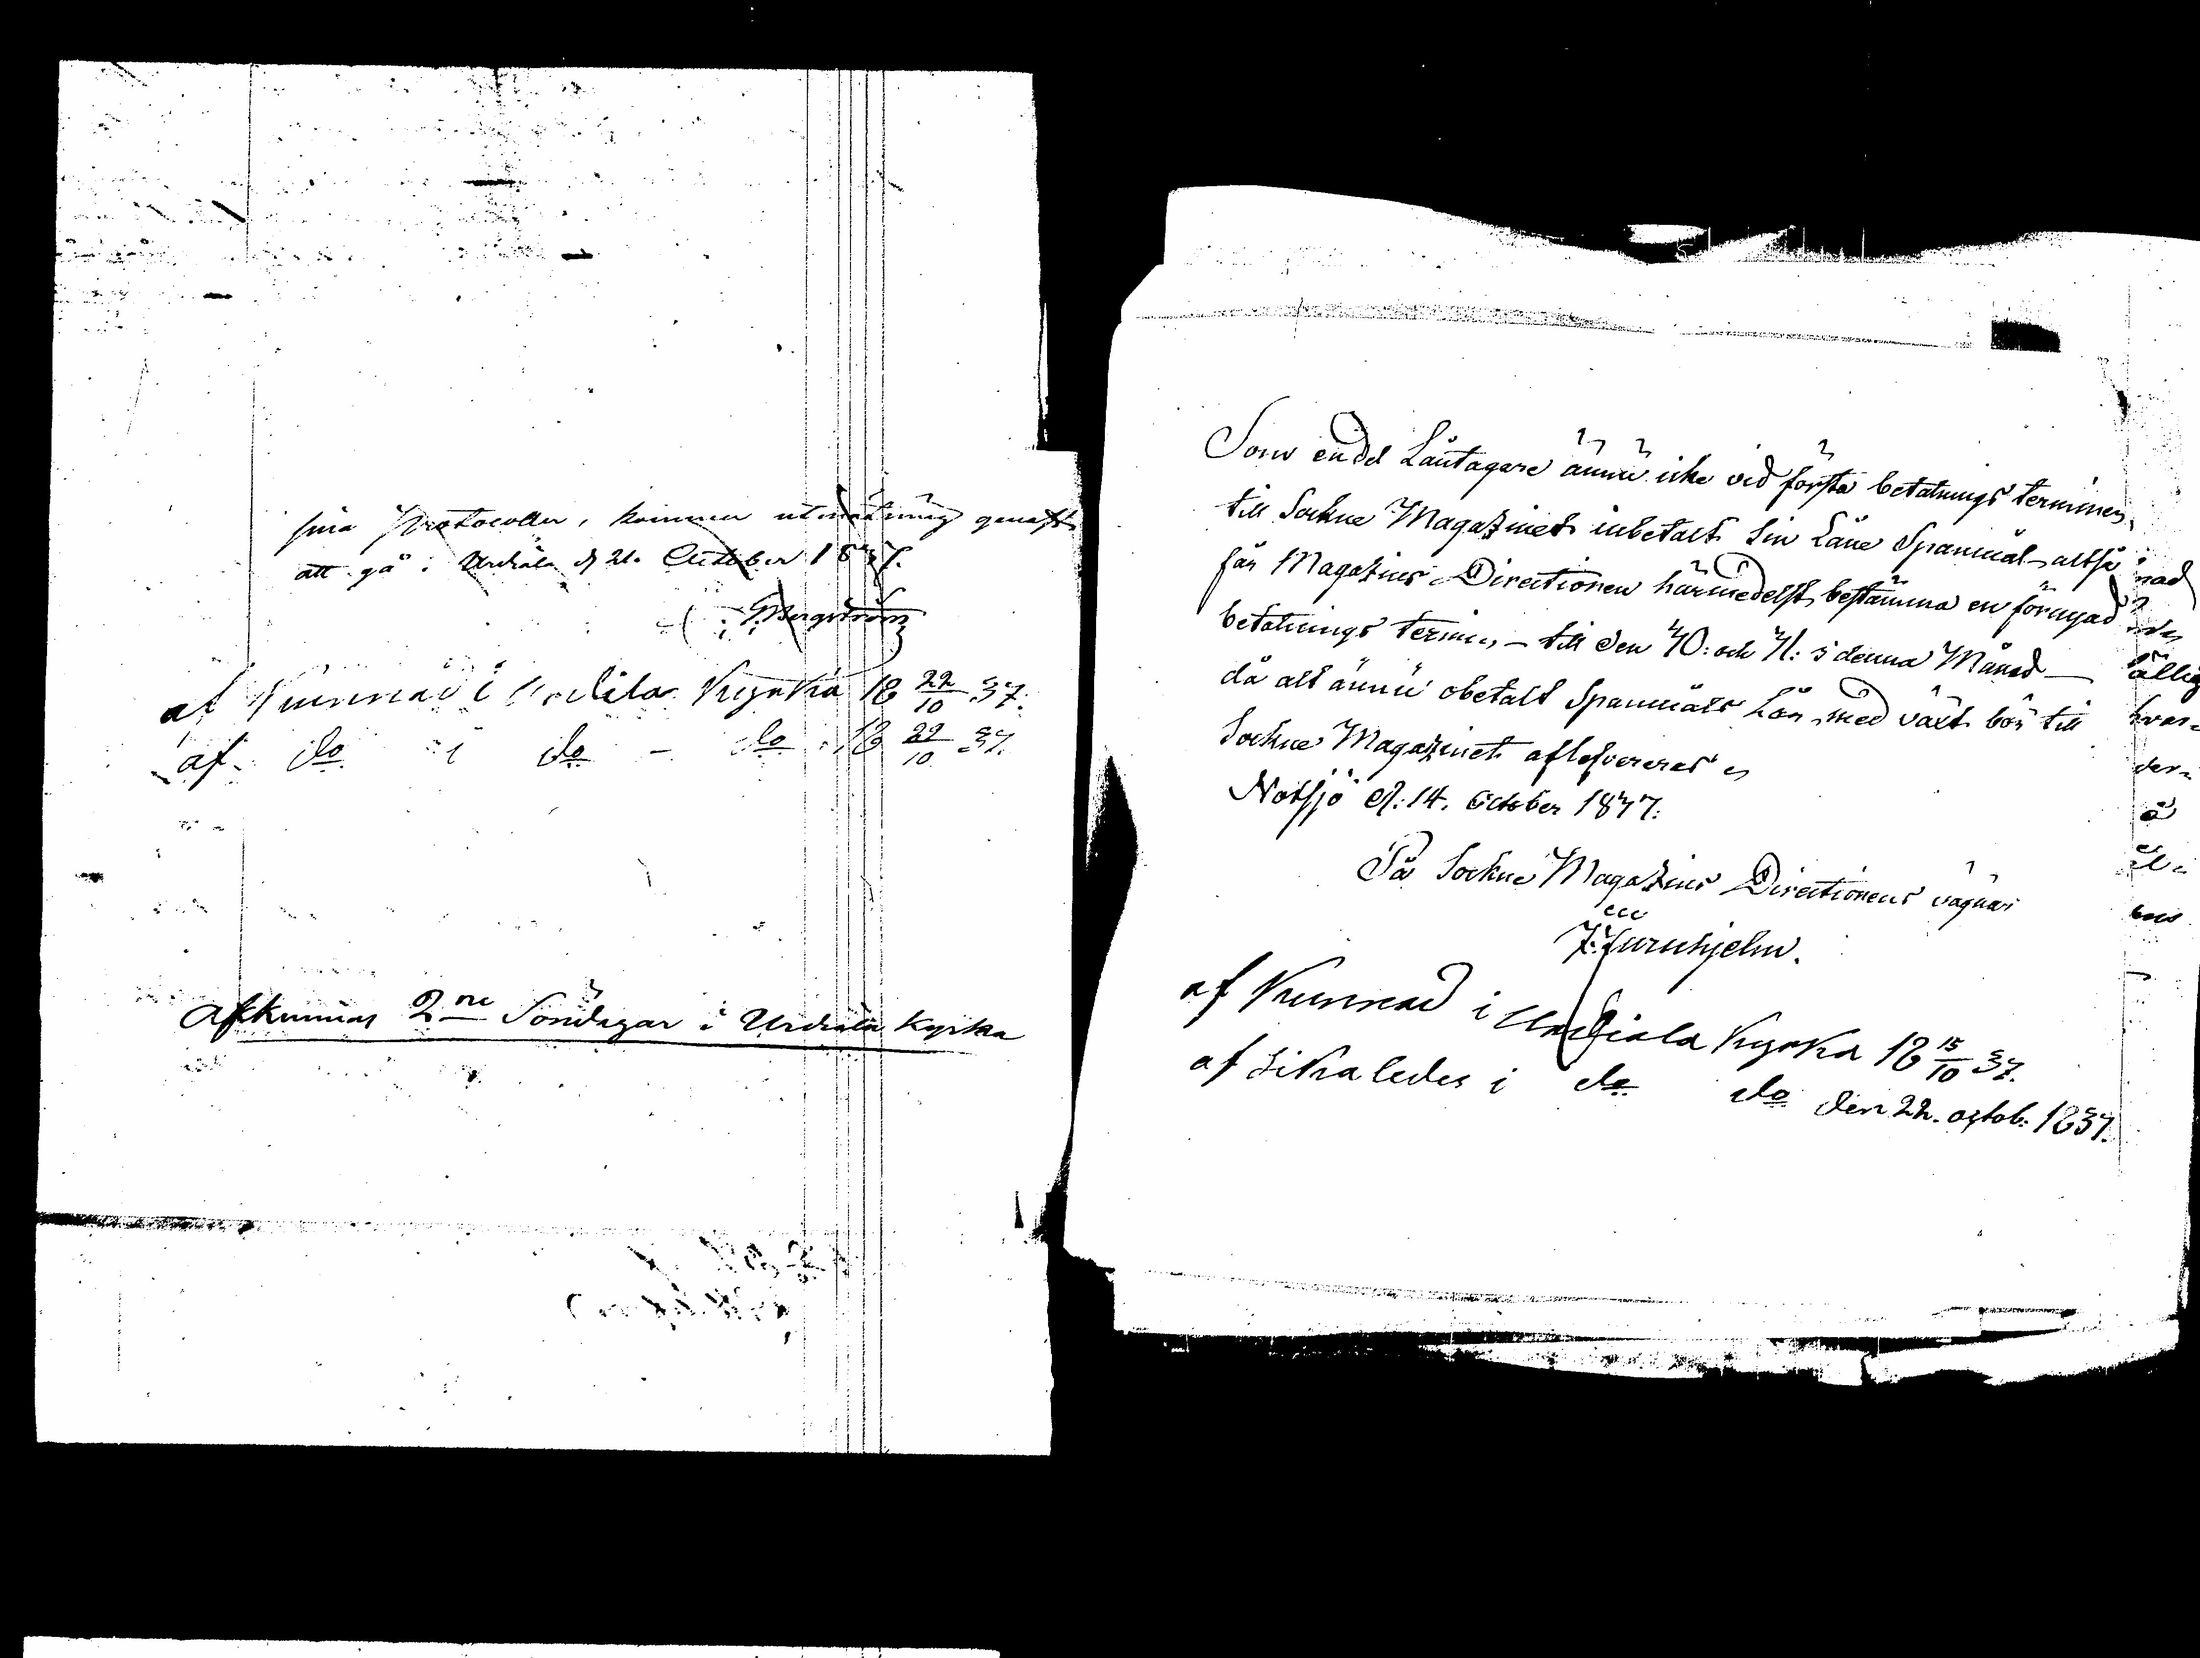 sina protocoller, kommer utmätning genast
att gå: Urdiala d 21. October 1837.
G: Bergström
af Kunnad i Urdiala Kyrka 18 22/10 37.
af do i do - do 18 29/10 37.
Afkunnas 2ne Söndagar i Urdiala Kyrka
Som en del Låntagare ännu icke vid första betalnings terminen,
till Sockne Magazinet inbetalt sin Låne Spanmål, altså
får Magazins Directionen härmedelst bestämma en förnyad
betalnings termin, - till den 30: och 31: i denna Månad -
då alt ännu obetalt Spanmåls Lån, med växt bör till
Sockne Magazinet aflefvereras
Notsjö d: 14. October 1837.
På Sockne Magazins Directionens vägnar
Furuhjelm.
af Kunnad i Urdiala Kyrka 18 15/10 37.
af Likaledes i do do den 22. octob. 1837.
nad
ällig
hvar-
der-
å